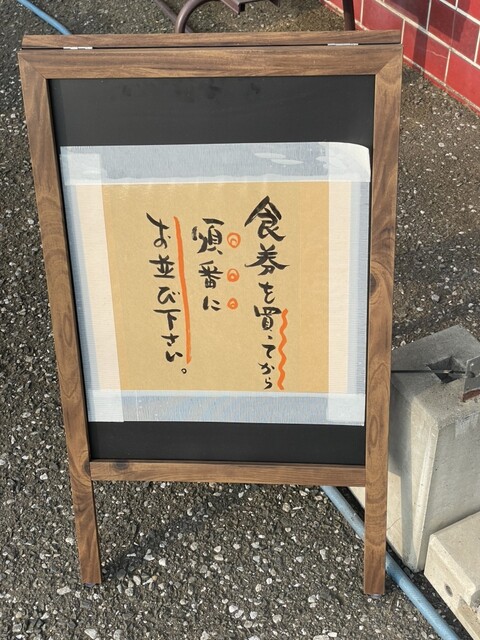 食券を買ってから
順番に
お並び下さい。